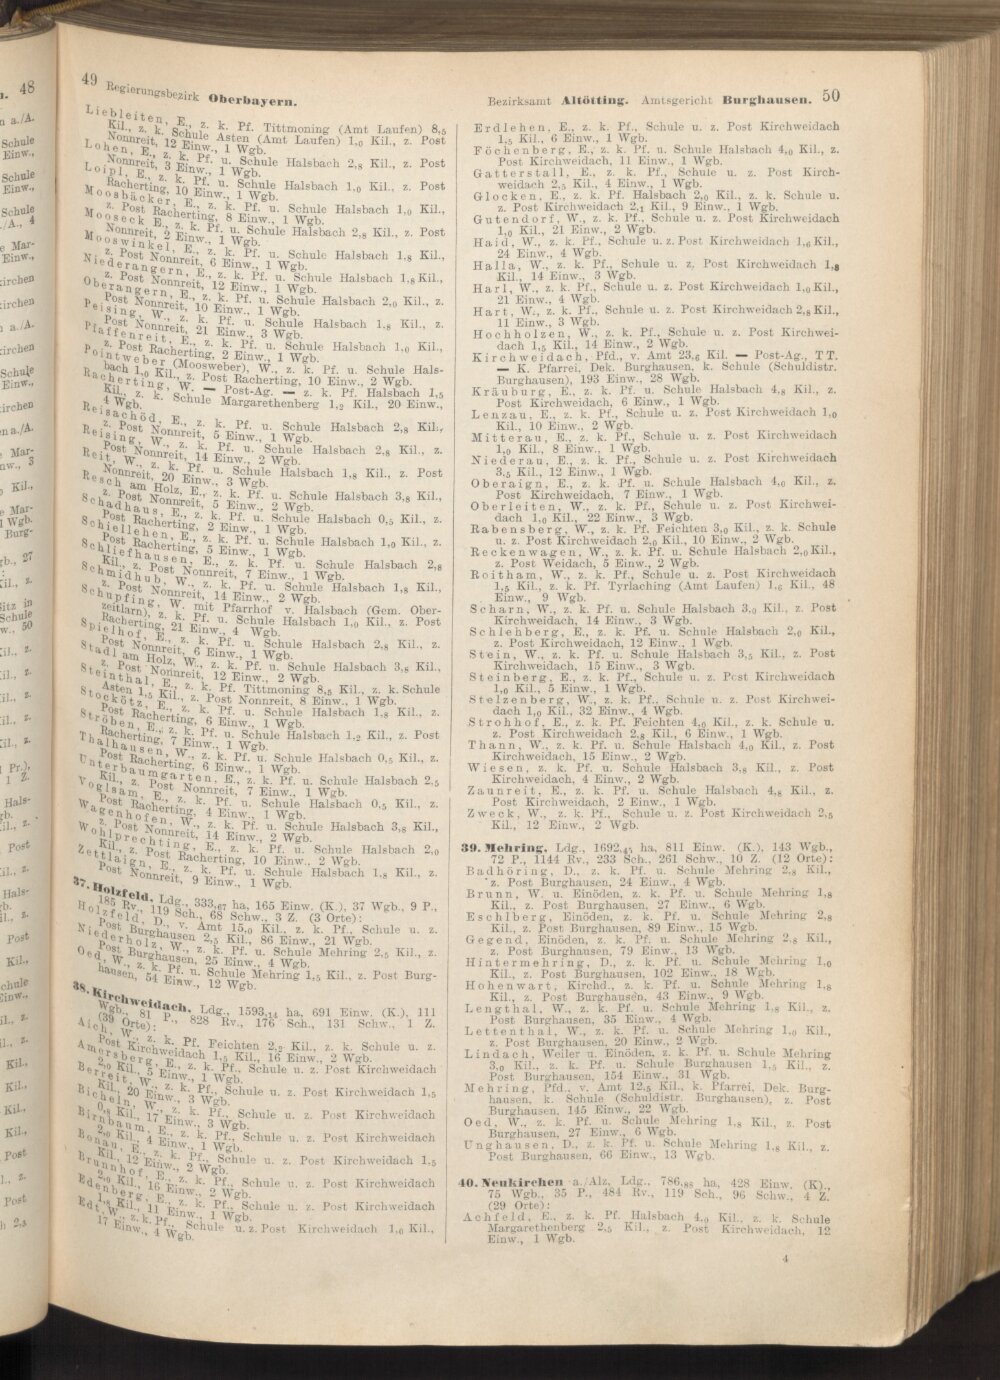 49 Regierungsbezirk Oberbayern.
Liebleiten, E., z. k. Pf. Tittmoning (Amt Laufen) 8,5
Kil., z. k. Schule Asten (Amt Laufen) 1,0 Kil., z. Post
Nonnreit, 12 Einw., 1 Wgb.
Lohen, E., z. k. Pf. u. Schule Halsbach 2,8 Kil., z. Post
Nonnreit, 3 Einw., 1 Wgb.
Loipl, E., z. k. Pf. u. Schule Halsbach 1,0 Kil., z. Post
Racherting, 10 Einw., 1 Wgb.
Moosbäcker, E., z. k. Pf. u. Schule Halsbach 1,0 Kil.,
z. Post Racherting, 8 Einw., 1 Wgb.
Mooseck E., z. k. Pf. u. Schule Halsbach 2,8 Kil., z. Post
Nonnreit, 2 Einw., 1 Wgb.
Mooswinkel, E., z. k. Pf. u. Schule Halsbach 1,8 Kil.,
z. Post Nonnreit, 6 Einw., 1 Wgb.
Niederangern, E., z. k. Pf. u. Schule Halsbach 1,8 Kil.,
z. Post Nonnreit, 12 Einw., 1 Wgb.
Oberangern, E., z. k. Pf. u. Schule Halsbach 2,0 Kil., z.
Post Nonnreit, 10 Einw., 1 Wgb.
Peising, W., z. k. Pf. u. Schule Halsbach 1,8 Kil., z.
Post Nonnreit, 21 Einw., 3 Wgb.
Pfaffenreit, E., z. k. Pf. u. Schule Halsbach 1,0 Kil.,
z. Post Racherting, 2 Einw., 1 Wgb.
Pointweber (Moosweber), W., z. k. Pf. u. Schule Hals-
bach 1,0 Kil., z. Post Racherting, 10 Einw., 2 Wgb.
Racherting, W. — Post-Ag. — z. k. Pf. Halsbach 1,5
Kil., z. k. Schule Margarethenberg 1,2 Kil., 20 Einw.,
4 Wgb.
Reisachöd, E., z. k. Pf. u. Schule Halsbach 2,8 Kil.,
z. Post Nonnreit, 5 Einw., 1 Wgb.
Reising, W., z. k. Pf. u. Schule Halsbach 2,8 Kil., z.
Post Nonnreit, 14 Einw., 2 Wgb.
Reit, W., z. k. Pf. u. Schule Halsbach 1,8 Kil., z. Post
Nonnreit, 20 Einw., 3 Wgb.
Resch am Holz, E., z. k. Pf. u. Schule Halsbach 3,8 Kil.,
z. Post Nonnreit, 5 Einw., 2 Wgb.
Schadhaus, E., z. k. Pf. u. Schule Halsbach 0,5 Kil., z.
Post Racherting, 2 Einw., 1 Wgb.
Schiellehen, E., z. k. Pf. u. Schule Halsbach 1,0 Kil., z.
Post Racherting, 5 Einw., 1 Wgb.
Schliefhausen, E., z. k. Pf. u. Schule Halsbach 2,8
Kil., z. Post Nonnreit, 7 Einw., 1 Wgb.
Schmidhub, W., z. k. Pf. u. Schule Halsbach 1,8 Kil.,
z. Post Nonnreit, 14 Einw., 2 Wgb.
Schupfing, W. mit Pfarrhof v. Halsbach (Gem. Ober-
zeitlarn), z. k. Pf. u. Schule Halsbach 1,0 Kil., z. Post
Racherting, 21 Einw., 4 Wgb.
Spielhof, E., z. k. Pf. u. Schule Halsbach 2,8 Kil., z.
Post Nonnreit, 6 Einw., 1 Wgb.
Stadl am Holz, W., z. k. Pf. u. Schule Halsbach 3,8 Kil.,
z. Post Nonnreit, 12 Einw., 2 Wgb.
Steinthal, E., z. k. Pf. Tittmoning 8,5 Kil., z. k. Schule
Asten 1,5 Kil., z. Post Nonnreit, 8 Einw., 1 Wgb.
Stockötz, E., z. k. Pf. u. Schule Halsbach 1,8 Kil., z.
Post Racherting, 6 Einw., 1 Wgb.
Ströben, E., z. k. Pf. u. Schule Halsbach 1,2 Kil., z. Post
Racherting, 7 Einw., 1 Wgb.
Thalhausen, W., z. k. Pf. u. Schule Halsbach 0,5 Kil., z.
Post Racherting, 6 Einw., 1 Wgb.
Unterbaumgarten, E., z. k. Pf. u. Schule Halsbach 2,5
Kil., z. Post Nonnreit, 7 Einw., 1 Wgb.
Voglsam, E., z. k. Pf. u. Schule Halsbach 0,5 Kil., z.
Post Racherting, 4 Einw., 1 Wgb.
Wagenhofen, W., z. k. Pf. u. Schule Halsbach 3,8 Kil.,
z. Post Nonnreit, 14 Einw., 2 Wgb.
Wohlprechting, E., z. k. Pf. u. Schule Halsbach 2,0
Kil., z. Post Racherting, 10 Einw., 2 Wgb.
Zettlaign, E., z. k. Pf. u. Schule Halsbach 1,8 Kil., z.
Post Nonnreit, 9 Einw., 1 Wgb.
37. Holzfeld, Ldg., 333,67 ha, 165 Einw. (K.), 37 Wgb., 9 P.,
185 Rv., 119 Sch., 68 Schw., 3 Z. (3 Orte):
Holzfeld, D., v. Amt 15,0 Kil., z. k. Pf., Schule u. z.
Post Burghausen 2,5 Kil., 86 Einw., 21 Wgb.
Niederholz, W., z. k. Pf. u. Schule Mehring 2,5 Kil., z.
Post Burghausen, 25 Einw., 4 Wgb.
Oed, W., z. k. Pf. u. Schule Mehring 1,5 Kil., z. Post Burg-
hausen, 54 Einw., 12 Wgb.
38. Kirchweidach, Ldg., 1593,14 ha, 691 Einw. (K.), 111
Wgb., 81 P., 828 Rv., 176 Sch., 131 Schw., 1 Z.
(39 Orte):
Aich, W., z. k. Pf. Feichten 2,2 Kil., z. k. Schule u. z.
Post Kirchweidach 1,5 Kil., 16 Einw., 2 Wgb.
Amersberg, E., z. k. Pf., Schule u. z. Post Kirchweidach
2,0 Kil., 5 Einw., 1 Wgb.
Berreit, W., z. k. Pf., Schule u. z. Post Kirchweidach 1,5
Kil., 20 Einw., 3 Wgb.
Bicheln, W., z. k. Pf., Schule u. z. Post Kirchweidach
0,8 Kil., 17 Einw., 3 Wgb.
Birnbaum, E., z. k. Pf., Schule u. z. Post Kirchweidach
2,0 Kil., 4 Einw., 1 Wgb.
Bonau, E., z. k. Pf., Schule u. z. Post Kirchweidach 1,5
Kil., 12 Einw., 2 Wgb.
Brunnhof, E., z. k. Pf., Schule u. z. Post Kirchweidach
2,0 Kil., 16 Einw., 2 Wgb.
Edenberg, E., z. k. Pf., Schule u. z. Post Kirchweidach
1,8 Kil., 11 Einw., 1 Wgb.
Edt, W., z. k. Pf., Schule u. z. Post Kirchweidach 1,0 Kil.,
17 Einw., 4 Wgb.
Bezirksamt Altötting. Amtsgericht Burghausen. 50
Erdlehen, E., z. k. Pf., Schule u. z. Post Kirchweidach
1,5 Kil., 6 Einw., 1 Wgb.
Föchenberg, E., z. k. Pf. u. Schule Halsbach 4,0 Kil., z.
Post Kirchweidach, 11 Einw., 1 Wgb.
Gatterstall, E., z. k. Pf., Schule u. z. Post Kirch-
weidach 2,5 Kil., 4 Einw., 1 Wgb.
Glocken, E., z. k. Pf. Halsbach 2,0 Kil., z. k. Schule u.
z. Post Kirchweidach 2,1 Kil., 9 Einw., 1 Wgb.
Gutendorf, W., z. k. Pf., Schule u. z. Post Kirchweidach
1,0 Kil., 21 Einw., 2 Wgb.
Haid, W., z. k. Pf., Schule u. z. Post Kirchweidach 1,6 Kil.,
24 Einw., 4 Wgb.
Halla, W., z. k. Pf., Schule u. z. Post Kirchweidach 1,8
Kil., 14 Einw., 3 Wgb.
Harl, W., z. k. Pf., Schule u. z. Post Kirchweidach 1,0 Kil.,
21 Einw., 4 Wgb.
Hart, W., z. k. Pf., Schule u. z. Post Kirchweidach 2,8 Kil.,
11 Einw., 3 Wgb.
Hochholzen, W., z. k. Pf., Schule u. z. Post Kirchwei-
dach 1,5 Kil., 14 Einw., 2 Wgb.
Kirchweidach, Pfd., v. Amt 23,6 Kil. — Post-Ag., TT.
— K. Pfarrei, Dek. Burghausen, k. Schule (Schuldistr.
Burghausen), 193 Einw., 28 Wgb.
Kräuburg, E., z. k. Pf. u. Schule Halsbach 4,8 Kil., z.
Post Kirchweidach, 6 Einw., 1 Wgb.
Lenzau, E., z. k. Pf., Schule u. z. Post Kirchweidach 1,0
Kil., 10 Einw., 2 Wgb.
Mitterau, E., z. k. Pf., Schule u. z. Post Kirchweidach
1,0 Kil., 8 Einw., 1 Wgb.
Niederau, E., z. k. Pf., Schule u. z. Post Kirchweidach
3,5 Kil., 12 Einw., 1 Wgb.
Oberaign, E., z. k. Pf. u. Schule Halsbach 4,0 Kil., z.
Post Kirchweidach, 7 Einw., 1 Wgb.
Oberleiten, W., z. k. Pf., Schule u. z. Post Kirchwei-
dach 1,0 Kil., 22 Einw., 3 Wgb.
Rabensberg, W., z. k. Pf. Feichten 3,0 Kil., z. k. Schule
u. z. Post Kirchweidach 2,0 Kil., 10 Einw., 2 Wgb.
Reckenwagen, W., z. k. Pf. u. Schule Halsbach 2,0 Kil.,
z. Post Weidach, 5 Einw., 2 Wgb.
Roitham, W., z. k. Pf., Schule u. z. Post Kirchweidach
1,5 Kil., z. k. Pf. Tyrlaching (Amt Laufen) 1,6 Kil., 48
Einw., 9 Wgb.
Scharn, W., z. k. Pf. u. Schule Halsbach 3,0 Kil., z. Post
Kirchweidach, 14 Einw., 3 Wgb.
Schlehberg, E., z. k. Pf. u. Schule Halsbach 2,0 Kil.,
z. Post Kirchweidach, 12 Einw., 1 Wgb.
Stein, W., z. k. Pf. u. Schule Halsbach 3,5 Kil., z. Post
Kirchweidach, 15 Einw., 3 Wgb.
Steinberg, E., z. k. Pf., Schule u. z. Post Kirchweidach
1,0 Kil., 5 Einw., 1 Wgb.
Stelzenberg, W., z. k. Pf., Schule u. z. Post Kirchwei-
dach 1,0 Kil., 32 Einw., 4 Wgb.
Strohhof, E., z. k. Pf. Feichten 4,0 Kil., z. k. Schule u.
z. Post Kirchweidach 2,8 Kil., 6 Einw., 1 Wgb.
Thann, W., z. k. Pf. u. Schule Halsbach 4,0 Kil., z. Post
Kirchweidach, 15 Einw., 2 Wgb.
Wiesen, z. k. Pf. u. Schule Halsbach 3,8 Kil., z. Post
Kirchweidach, 4 Einw., 2 Wgb.
Zaunreit, E., z. k. Pf. u. Schule Halsbach 4,8 Kil., z.
Post Kirchweidach, 2 Einw., 1 Wgb.
Zweck, W., z. k. Pf., Schule u. z. Post Kirchweidach 2,5
Kil., 12 Einw., 2 Wgb.
39. Mehring, Ldg., 1692,45 ha, 811 Einw. (K.), 143 Wgb.,
72 P., 1144 Rv., 233 Sch., 261 Schw., 10 Z. (12 Orte):
Badhöring, D., z. k. Pf. u. Schule Mehring 2,8 Kil.,
z. Post Burghausen, 24 Einw., 4 Wgb.
Brunn, W. u. Einöden, z. k. Pf. u. Schule Mehring 1,8
Kil., z. Post Burghausen, 27 Einw., 6 Wgb.
Eschlberg, Einöden, z. k. Pf. u. Schule Mehring 2,8
Kil., z. Post Burghausen, 89 Einw., 15 Wgb.
Gegend, Einöden, z. k. Pf. u. Schule Mehring 2,8 Kil.,
z. Post Burghausen, 79 Einw., 13 Wgb.
Hintermehring, D., z. k. Pf. u. Schule Mehring 1,0
Kil., z. Post Burghausen, 102 Einw., 18 Wgb.
Hohenwart, Kirchd., z. k. Pf. u. Schule Mehring 1,8
Kil., z. Post Burghausen, 43 Einw., 9 Wgb.
Lengthal, W., z. k. Pf. u. Schule Mehring 1,8 Kil., z.
Post Burghausen, 35 Einw., 4 Wgb.
Lettenthal, W., z. k. Pf. u. Schule Mehring 1,0 Kil.,
z. Post Burghausen, 20 Einw., 2 Wgb.
Lindach, Weiler u. Einöden, z. k. Pf. u. Schule Mehring
3,0 Kil., z. k. Pf. u. Schule Burghausen 1,5 Kil., z.
Post Burghausen, 154 Einw., 31 Wgb.
Mehring, Pfd., v. Amt 12,5 Kil., k. Pfarrei, Dek. Burg-
hausen, k. Schule (Schuldistr. Burghausen), z. Post
Burghausen, 145 Einw., 22 Wgb.
Oed, W., z. k. Pf. u. Schule Mehring 1,8 Kil., z. Post
Burghausen, 27 Einw., 6 Wgb.
Unghausen, D., z. k. Pf. u. Schule Mehring 1,8 Kil., z.
Post Burghausen, 66 Einw., 13 Wgb.
40. Neukirchen a./Alz, Ldg., 786,85 ha, 428 Einw. (K.),
75 Wgb., 35 P., 484 Rv., 119 Sch., 96 Schw., 4 Z.
(29 Orte):
Achfeld, E., z. k. Pf. Halsbach 4,0 Kil., z. k. Schule
Margarethenberg 2,5 Kil., z. Post Kirchweidach, 12
Einw., 1 Wgb.
4